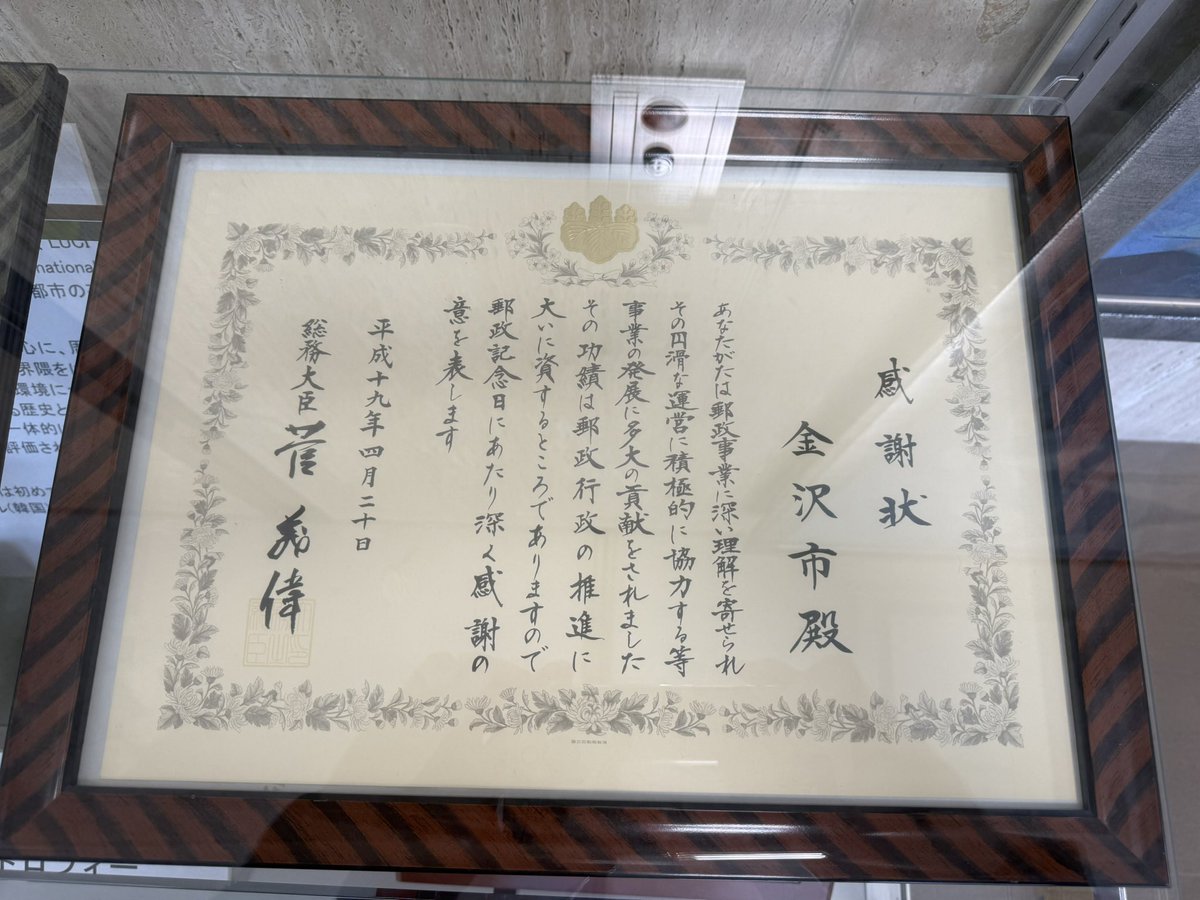 感謝状
金沢市殿
あなたがたは郵政事業に深い理解を寄せられ
その円滑な運営に積極的に協力する等
事業の発展に多大の貢献をされました
その功績は郵政行政の推進に
大いに資するところでありますので
郵政記念日にあたり深く感謝の
意を表します
平成十九年四月二十日
総務大臣 菅義偉
LUCI
national
都市の
心に、
界隈を
環境に
歴史と
一体的
評価さ
は初めて
ル(韓国)
トロフィー